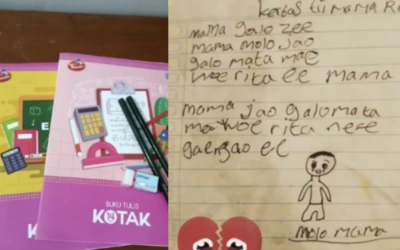 BUKU TULIS
KOTAK
kertas tii mama Re
mama galo zee
mama molo jao
galo mata mae
woe rita ee mama
mama jao galo mata
mae woe rita nee
gae ngao ee
molo mama